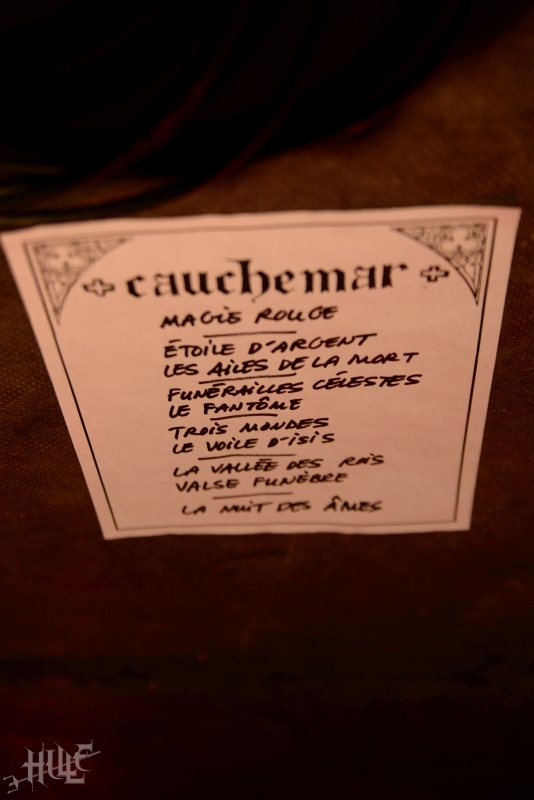 cauchemar
MAGIE ROUGE
ÉTOILE D'ARGENT
LES AILES DE LA MORT
FUNÉRAILLES CÉLESTES
LE FANTÔME
TROIS MONDES
LE VOILE D'ISIS
LA VALLÉE DES ROIS
VALSE FUNÈBRE
LA NUIT DES ÂMES